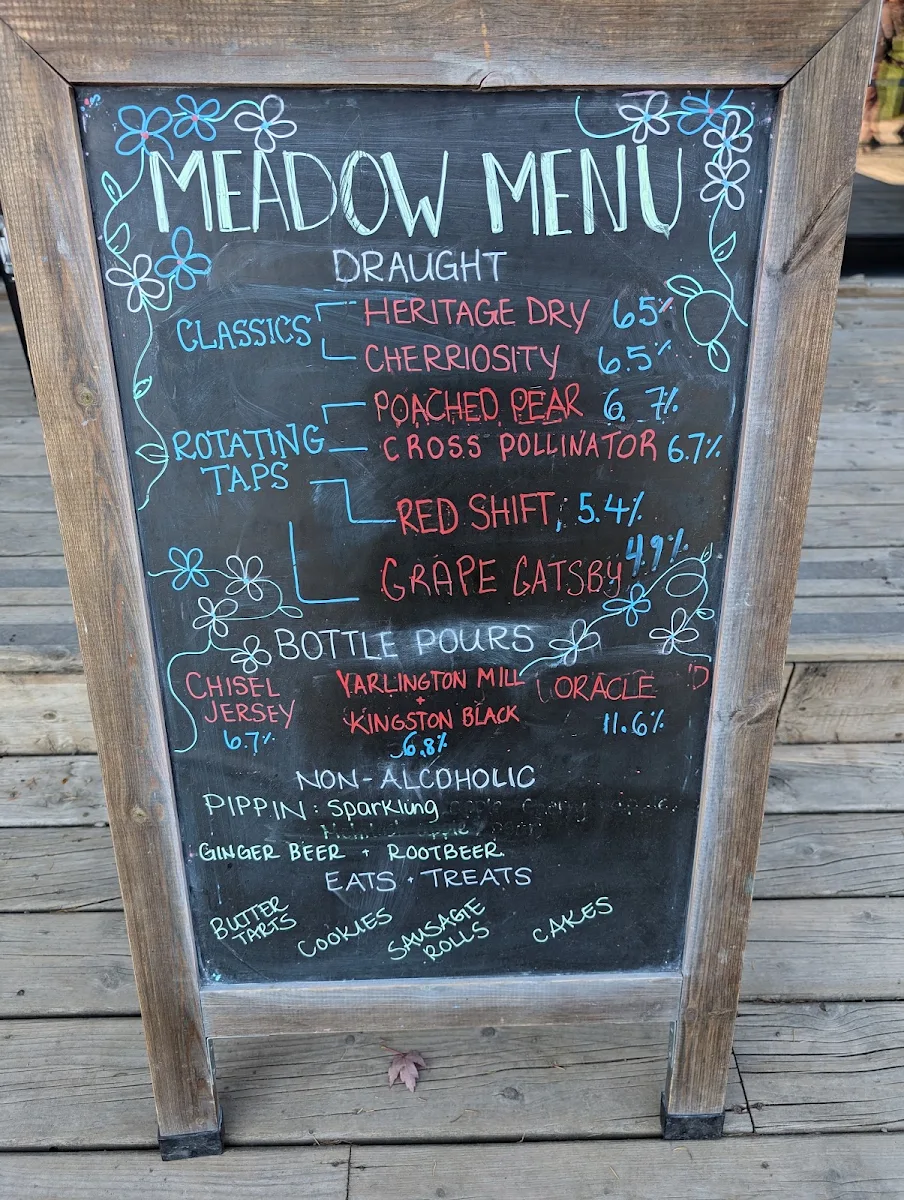 MEADOW MENU
DRAUGHT
CLASSICS
HERITAGE DRY 6.5%
CHERRIOSITY 6.5%
ROTATING TAPS
POACHED PEAR 6.7%
CROSS POLLINATOR 6.7%
RED SHIFT, 5.4%
GRAPE GATSBY 4.9%
BOTTLE POURS
CHISEL
JERSEY
6.7%
YARLINGTON MILL
+
KINGSTON BLACK
6.8%
ORACLE
11.6%
NON-ALCOHOLIC
PIPPIN: Sparklung
GINGER BEER + ROOTBEER.
EATS + TREATS
BUTTER
TARTS
COOKIES
SAUSAGE
ROLLS
CAKES